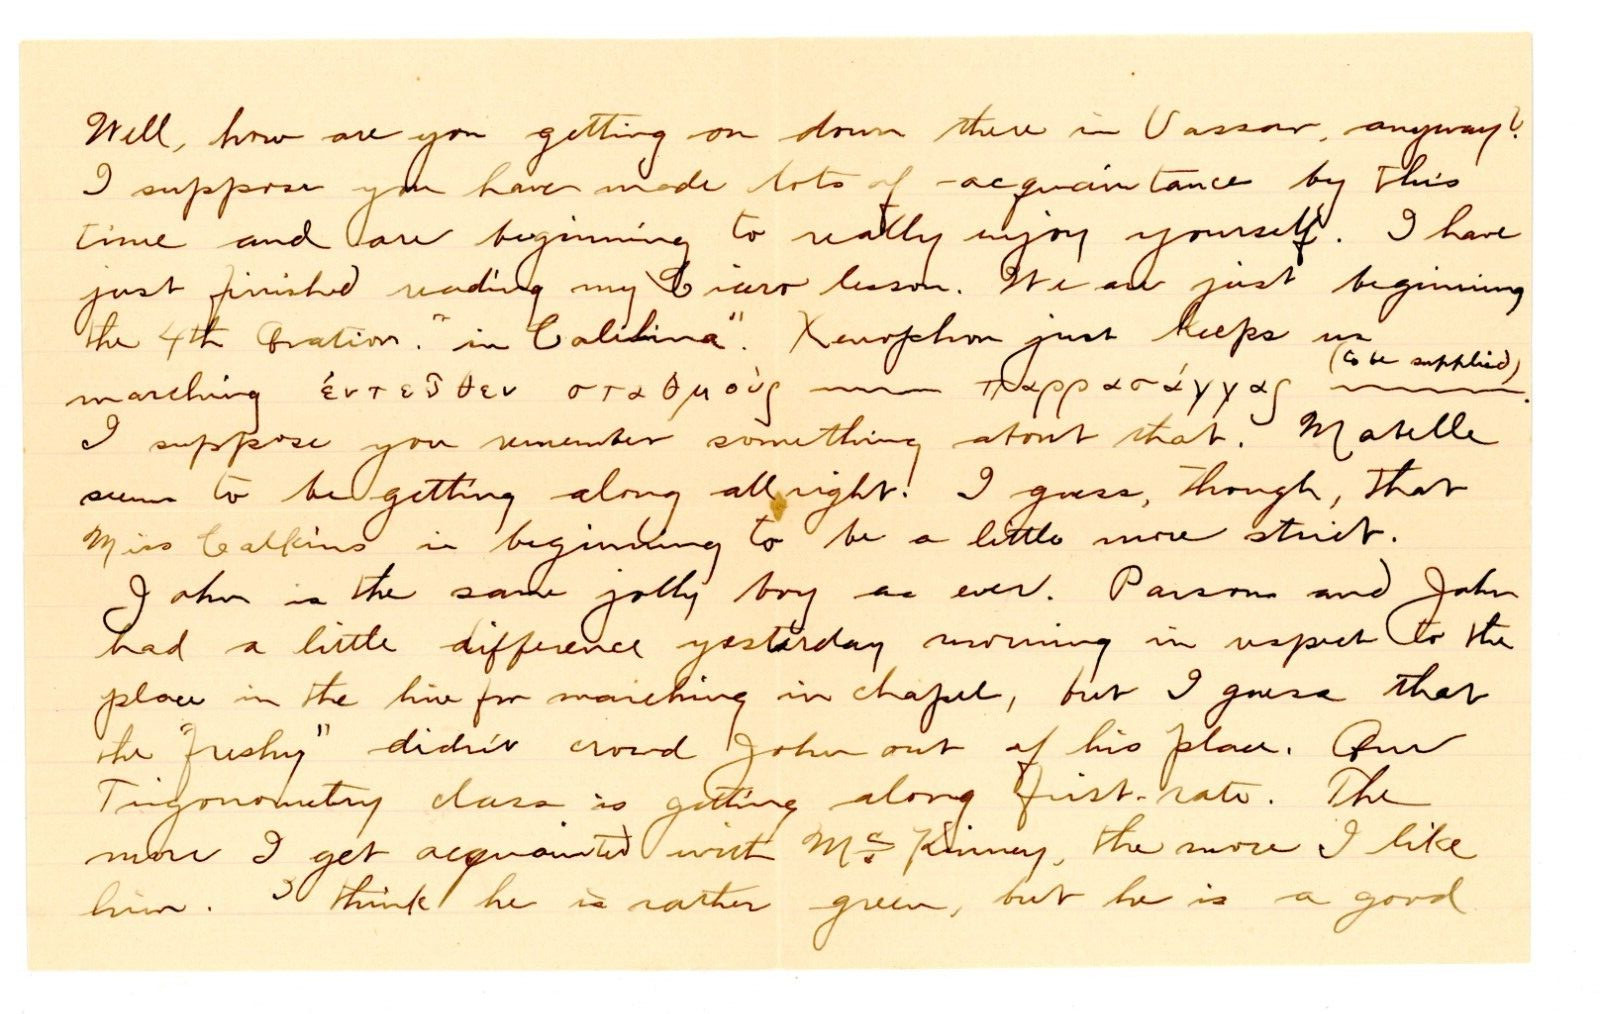 Well, how are you getting on down there in Vassar, anyway?
I suppose you have made lots of acquaintance by this
time and are beginning to really enjoy yourself. I have
just finished reading my Cicero lesson. We are just beginning
the 4th Oration. "in Catilina". Xenophon just keeps us
(to be supplied)
marching ἐντεῦθεν σταθμοὺς —— παρρασάγγας ——.
I suppose you remember something about that. Mabelle
seems to be getting along all right. I guess, though, that
Miss Calkins is beginning to be a little more strict.
John is the same jolly boy as ever. Parsons and John
had a little difference yesterday morning in respect to the
place in the line for marching in chapel, but I guess that
the "freshy" didn't crowd John out of his place. Our
Trigonometry class is getting along first-rate. The
more I get acquainted with Mc Kinney, the more I like
him. I think he is rather green, but he is a good